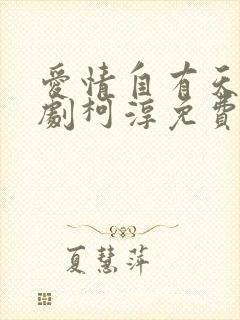 愛情自有天
劇柯淳免費
夏慧萍